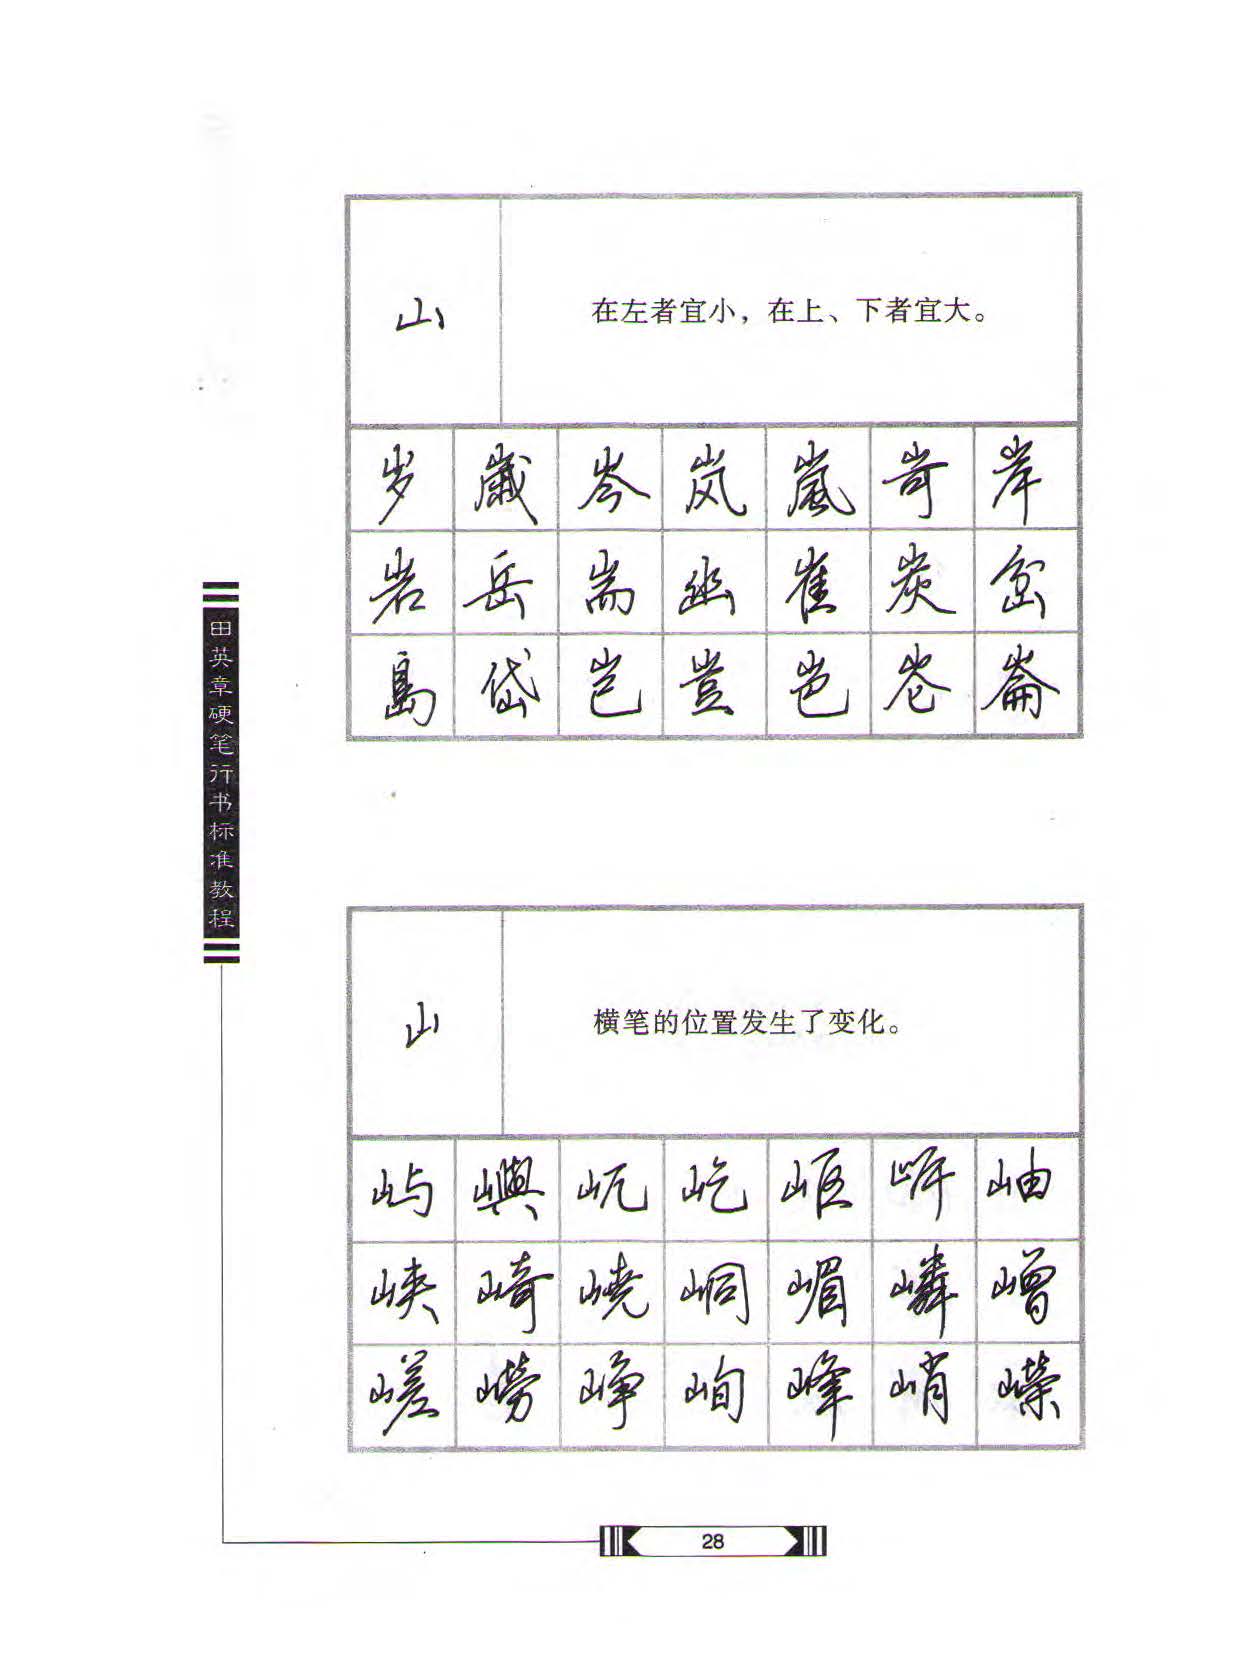 山
在左者宜小，在上、下者宜大。
岁 歲 岑 岚 嵐 岢 岸
岩 岳 耑 幽 崔 炭 岔
島 岱 岂 豈 岜 崙
田英章硬笔行书标准教程
山
横笔的位置发生了变化。
屿 嶼 屼 屹 岖 岍 岫
峡 崎 嶢 峒 嵋 嶙 嶒
嵯 嶗 峥 峋 峰 峭 嶸
28